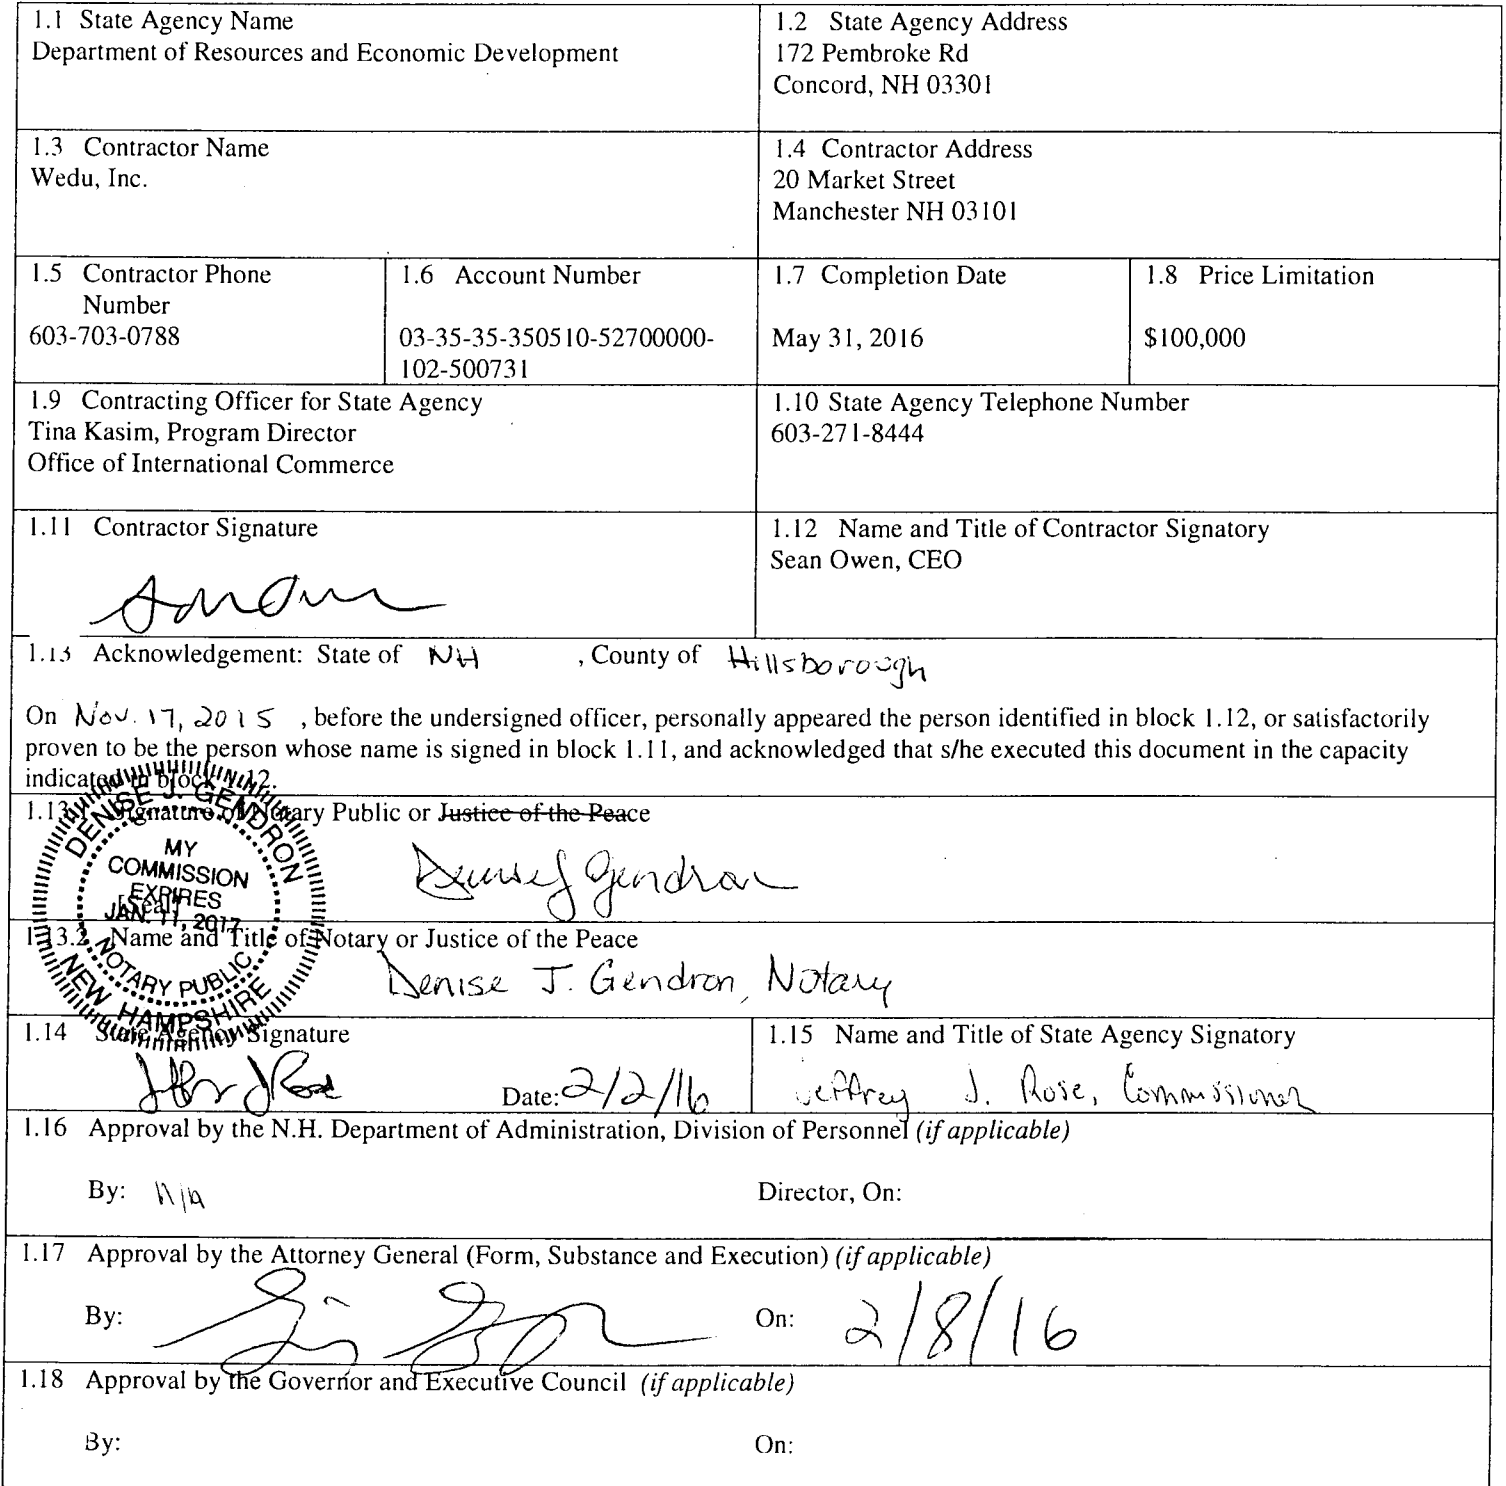 1.1 State Agency Name
Department of Resources and Economic Development
1.2 State Agency Address
172 Pembroke Rd
Concord, NH 03301
1.3 Contractor Name
Wedu, Inc.
1.4 Contractor Address
20 Market Street
Manchester NH 03101
1.5 Contractor Phone
Number
603-703-0788
1.6 Account Number
03-35-35-350510-52700000-
102-500731
1.7 Completion Date
May 31, 2016
1.8 Price Limitation
$100,000
1.9 Contracting Officer for State Agency
Tina Kasim, Program Director
Office of International Commerce
1.10 State Agency Telephone Number
603-271-8444
1.11 Contractor Signature
1.12 Name and Title of Contractor Signatory
Sean Owen, CEO
1.13 Acknowledgement: State of NH , County of Hillsborough
On Nov. 17, 2015 , before the undersigned officer, personally appeared the person identified in block 1.12, or satisfactorily
proven to be the person whose name is signed in block 1.11, and acknowledged that s/he executed this document in the capacity
indicated in block 1.12.
1.13.1 Signature of Notary Public or Justice of the Peace
DENISE J. GENDRON
MY
COMMISSION
EXPIRES
JAN. 11, 2017
NOTARY PUBLIC
NEW HAMPSHIRE
[Seal]
Denise J Gendron
1.13.2 Name and Title of Notary or Justice of the Peace
Denise J. Gendron, Notary
1.14 State Agency Signature
Date: 2/2/16
1.15 Name and Title of State Agency Signatory
Jeffrey J. Rose, Commissioner
1.16 Approval by the N.H. Department of Administration, Division of Personnel (if applicable)
By: N/A
Director, On:
1.17 Approval by the Attorney General (Form, Substance and Execution) (if applicable)
By:
On: 2/8/16
1.18 Approval by the Governor and Executive Council (if applicable)
By:
On: